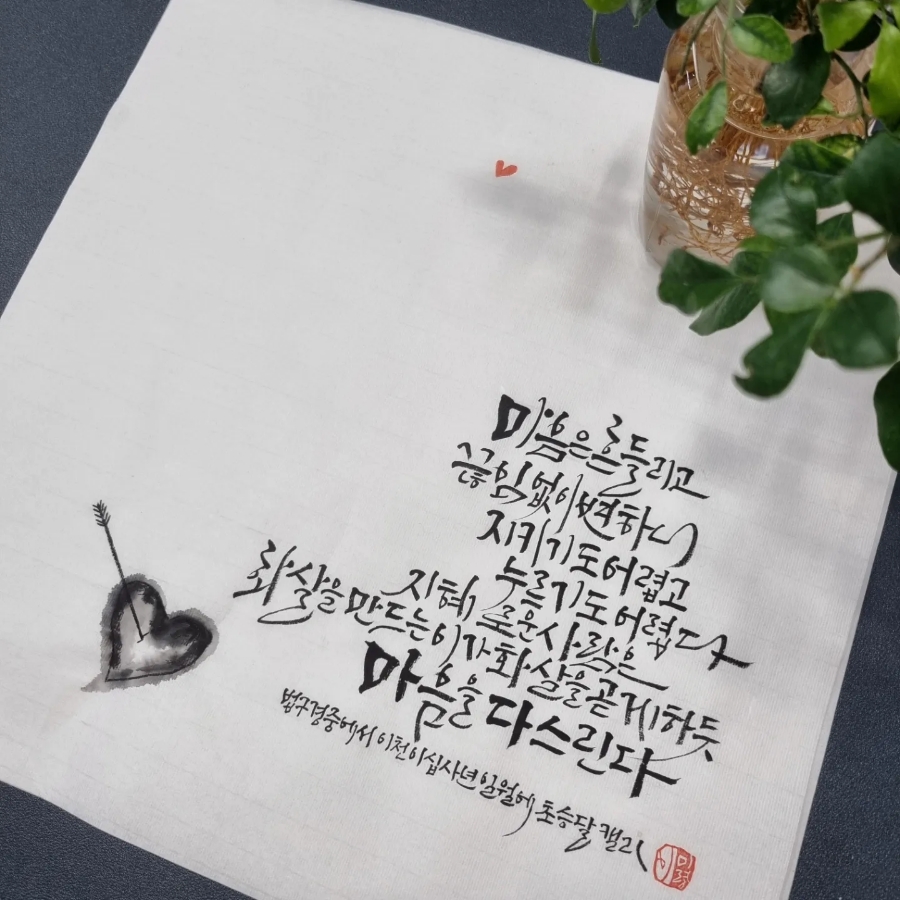 마음은 흔들리고
끊임없이 변하니
지키기도 어렵고
누르기도 어렵다
지혜로운 사람은
화살을 만드는 이가 화살을 곧게 하듯
마음을 다스린다
법구경 중에서 이천이십사년 일월에 초승달 캘리